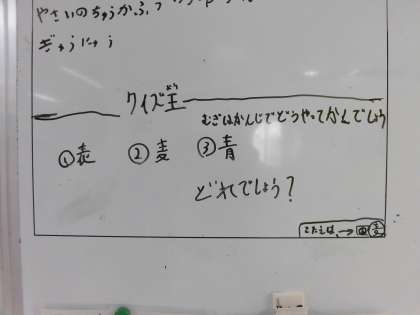 やさいのちゅうかふう
ぎゅうにゅう
クイズ王
おう
むぎはかんじでどうやってかんでしょう
①表 ②麦 ③青
どれでしょう?
こたえは、→